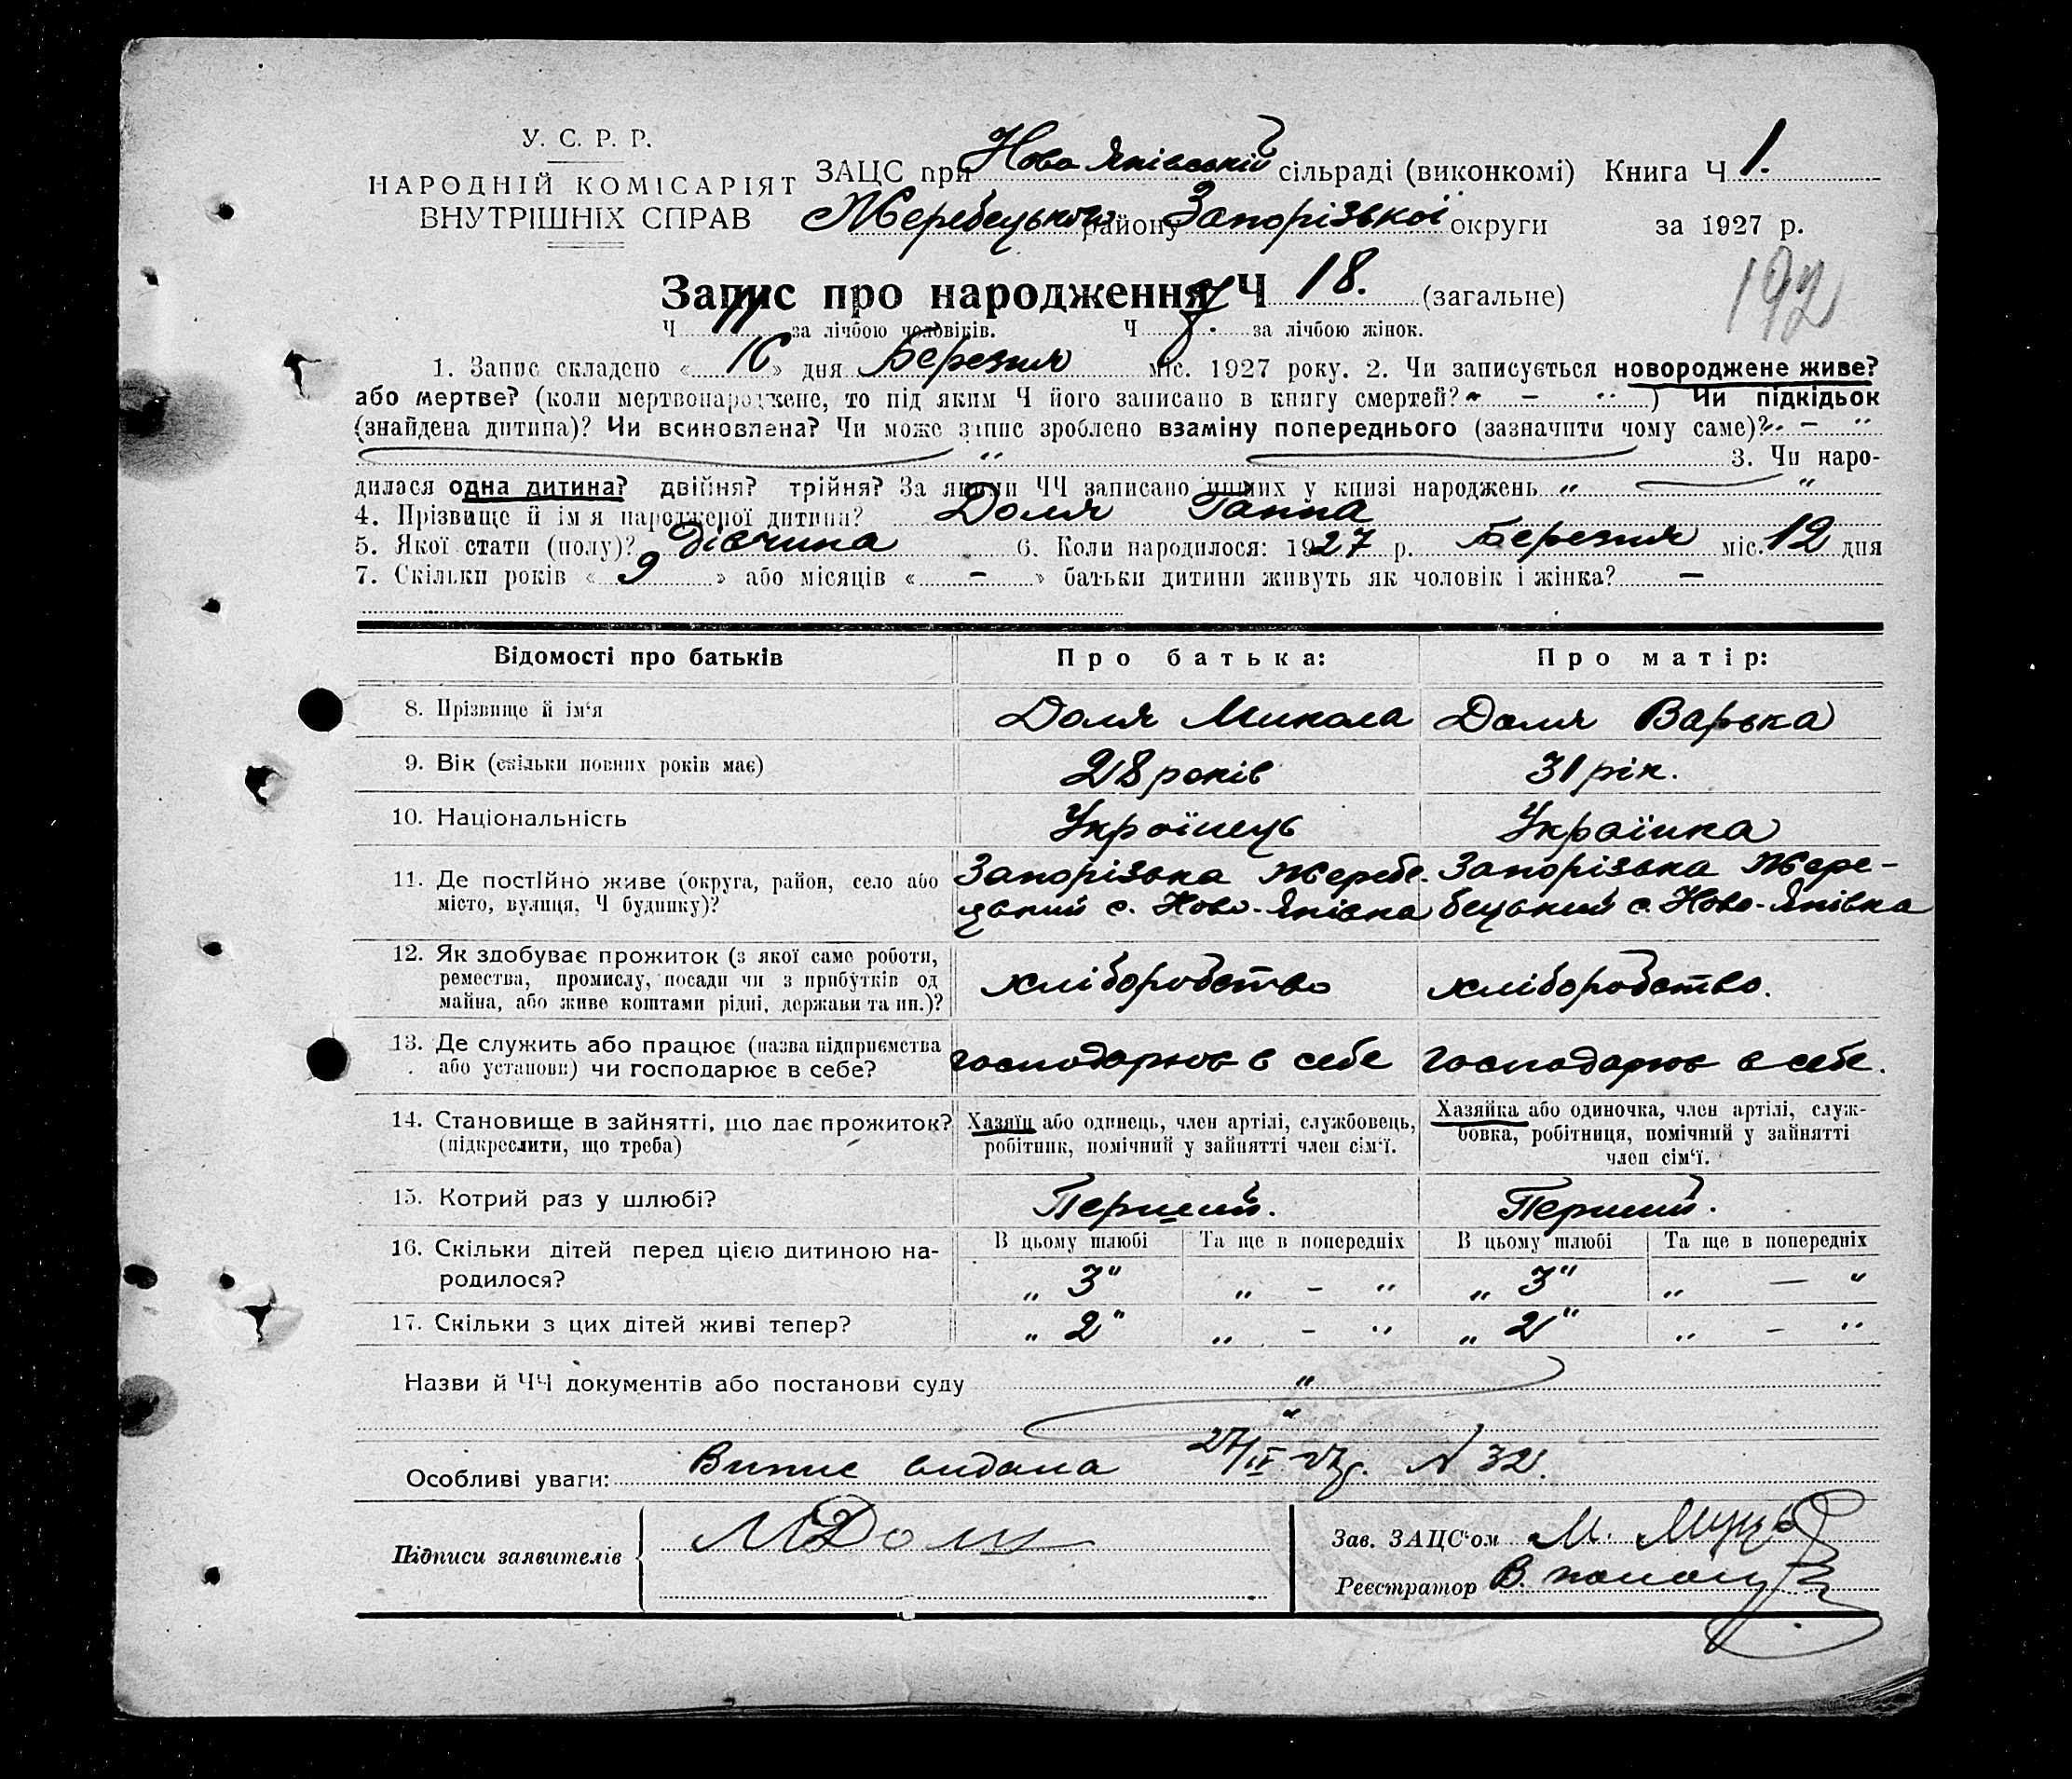 У. С. Р. Р.
НАРОДНІЙ КОМІСАРІЯТ
ВНУТРІШНІХ СПРАВ
ЗАЦС при Ново Яківській сільраді (виконкомі) Книга Ч 1.
Жеребецького району Запорізької округи за 1927 р.
192
Запис про народження Ч 18. (загальне)
Ч 11 за лічбою чоловіків. Ч 7. за лічбою жінок.
1. Запис складено « 16 » дня Березня міс. 1927 року. 2. Чи записується новороджене живе?
або мертве? (коли мертвонароджене, то під яким Ч його записано в книгу смертей? „ – “ ) Чи підкідьок
(знайдена дитина)? Чи всиновлена? Чи може запис зроблено взаміну попереднього (зазначити чому саме)? „ – “
“ 3. Чи наро-
дилася одна дитина? двійня? трійня? За якими ЧЧ записано инших у книзі народжень „ “
4. Прізвище й ім'я народженої дитини? Доля Ганна
5. Якої стати (полу)? дівчина 6. Коли народилося: 1927 р. Березня міс. 12 дня
7. Скільки років « 9 » або місяців « – » батьки дитини живуть як чоловік і жінка? –
Відомості про батьків Про батька: Про матір:
8. Прізвище й ім'я Доля Микола Доля Варька
9. Вік (скільки повних років має) 28 років 31 рік.
10. Національність Українець Українка
11. Де постійно живе (округа, район, село або Запорізька Жеребе- Запорізька Жере-
місто, вулиця, Ч будинку)? цький с. Ново-Яківка бецький с. Ново-Яківка
12. Як здобуває прожиток (з якої саме роботи,
ремества, промислу, посади чи з прибутків од хліборобство хліборобство.
майна, або живе коштами рідні, держави та ин.)?
13. Де служить або працює (назва підприємства
або установи) чи господарює в себе? господарює в себе господарює в себе.
14. Становище в зайнятті, що дає прожиток? Хазяїн або одинець, член артілі, службовець, Хазяйка або одиночка, член артілі, служ-
(підкреслити, що треба) робітник, помічний у зайнятті член сім'ї. бовка, робітниця, помічний у зайнятті
член сім'ї.
15. Котрий раз у шлюбі? Перший. Перший.
16. Скільки дітей перед цією дитиною на- В цьому шлюбі Та ще в попередніх В цьому шлюбі Та ще в попередніх
родилося? „ 3 “ „ – “ „ 3 “ „ – “
17. Скільки з цих дітей живі тепер? „ 2 “ „ – “ „ 2 “ „ – “
Назви й ЧЧ документів або постанови суду “
“
Особливі уваги: Випис видана 27/IV 27р. N 32.
Підписи заявителів МДоля
Зав. ЗАЦС'ом М.
Реєстратор В.